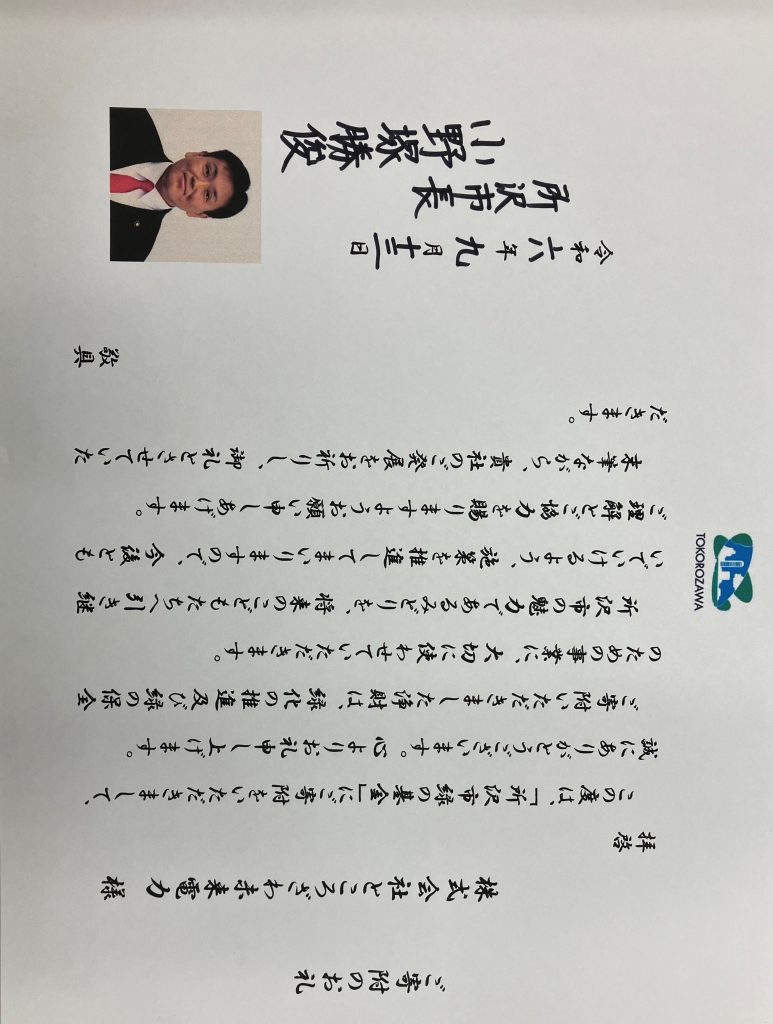 ご寄附のお礼
株式会社ところざわ未来電力 様
拝啓
この度は、「所沢市緑の基金」にご寄附をいただきまして、
誠にありがとうございます。心よりお礼申し上げます。
ご寄附いただきました浄財は、緑化の推進及び緑の保全
のための事業に、大切に使わせていただきます。
所沢市の魅力であるみどりを、将来のこどもたちへ引き継
いでいけるよう、施策を推進してまいりますので、今後とも
ご理解とご協力を賜りますようお願い申しあげます。
末筆ながら、貴社のご発展をお祈りし、御礼とさせていた
だきます。
敬具
令和六年九月十二日
所沢市長
小野塚勝俊
TOKOROZAWA